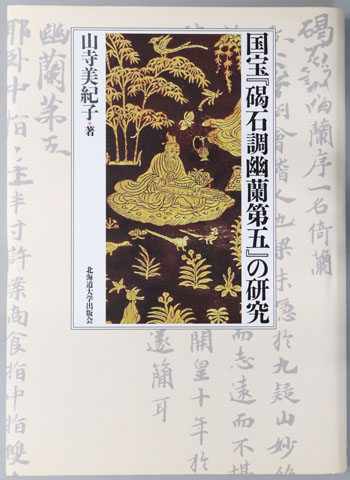 国宝『碣石調幽蘭第五』の研究
山寺美紀子・著
北海道大学出版会
碣石調幽蘭序一名倚蘭
會稽人也梁末隱於九疑山妙絶
而志遠而不堪
開皇十年於
遂簡耳
幽蘭第五
耶臥中指
半寸許案商食指中指雙